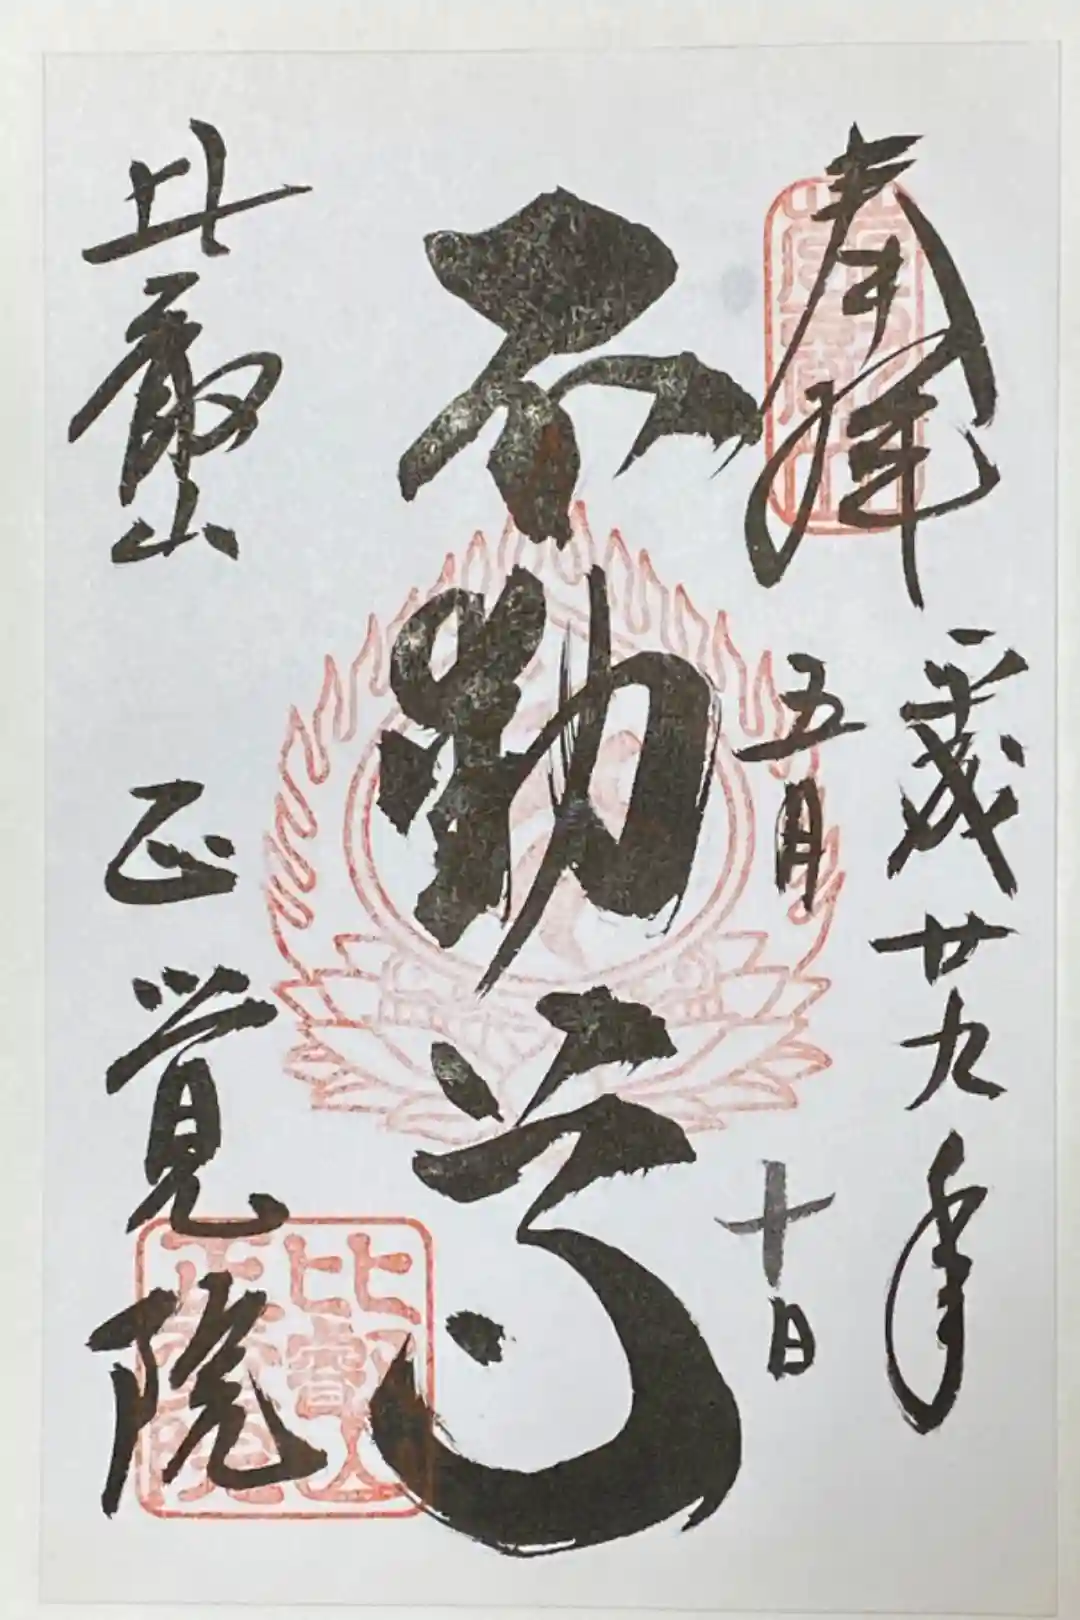 奉拝
平成廿九年
五月十日
不動尊
比叡山
正覚院
比叡山
正覚院